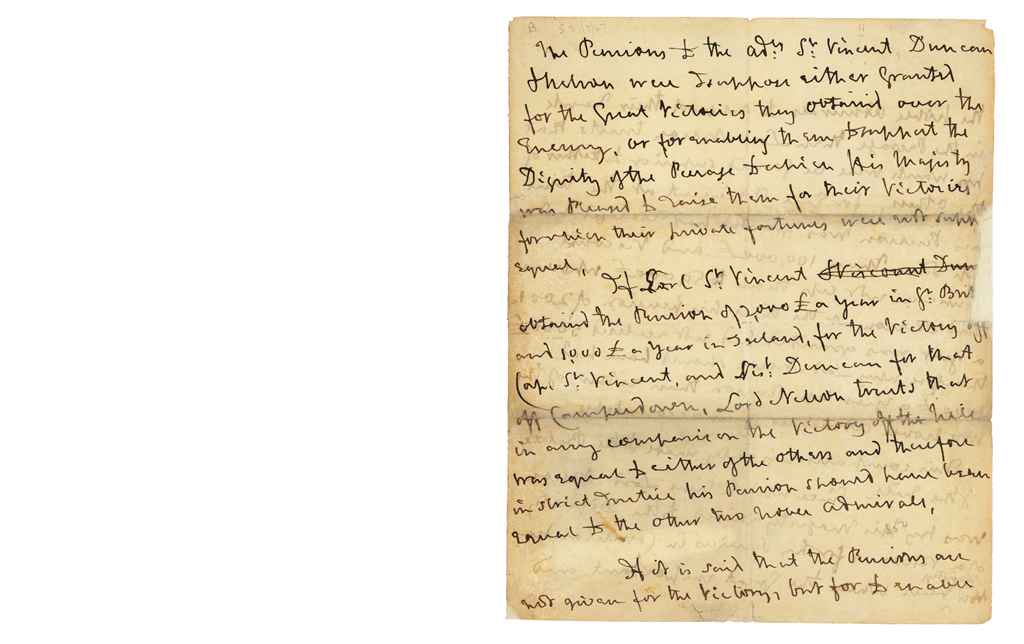 The Pensions to the adls. St. Vincent, Duncan
& Nelson were I suppose either Granted
for the Great Victories they obtained over the
Enemy, or for enabling them to support the
Dignity of the Peerage to which His Majesty
was pleased to raise them for their Victories
for which their private fortunes were not supp
equal,
If Earl St. Vincent & Viscount Dun
obtained the Pension of 2,000 £ a year in Gt. Bri
and 1000 £ a year in Ireland, for the Victory off
Cape St. Vincent, and Vist. Duncan for that
off Camperdown, Lord Nelson trusts that
in any comparison the Victory off the Nile
was equal to either of the others and therefore
in strict Justice his Pension should have been
equal to the other two noble admirals,
If it is said that the Pensions are
not given for the Victory, but for to enable